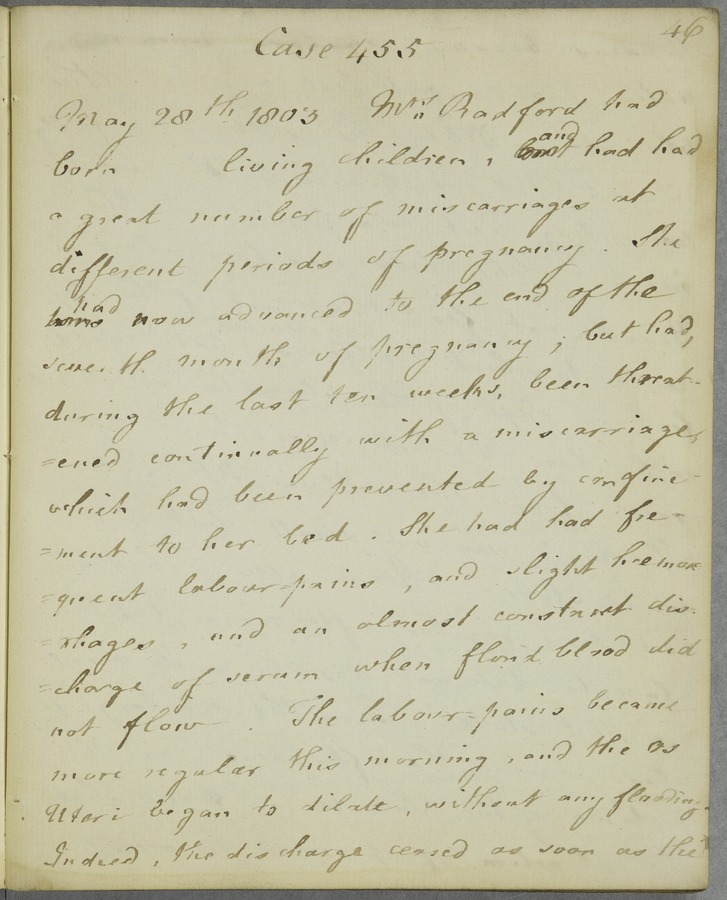 46
Case 455
May 28th 1803 Mrs Radford had
born living children, and had had
a great number of miscarriages at
different periods of pregnancy. She
had now advanced to the end of the
seventh month of pregnancy; but had,
during the last ten weeks, been threat-
=ened continually with a miscarriage,
which had been prevented by confine-
=ment to her bed. She had had fre-
=quent labour-pains, and slight hæmorr-
=rhages, and an almost constant dis-
=charge of serum when florid blood did
not flow. The labour-pains became
more regular this morning, and the os
Uteri began to dilate, without any flooding.
Indeed, the discharge ceased as soon as the